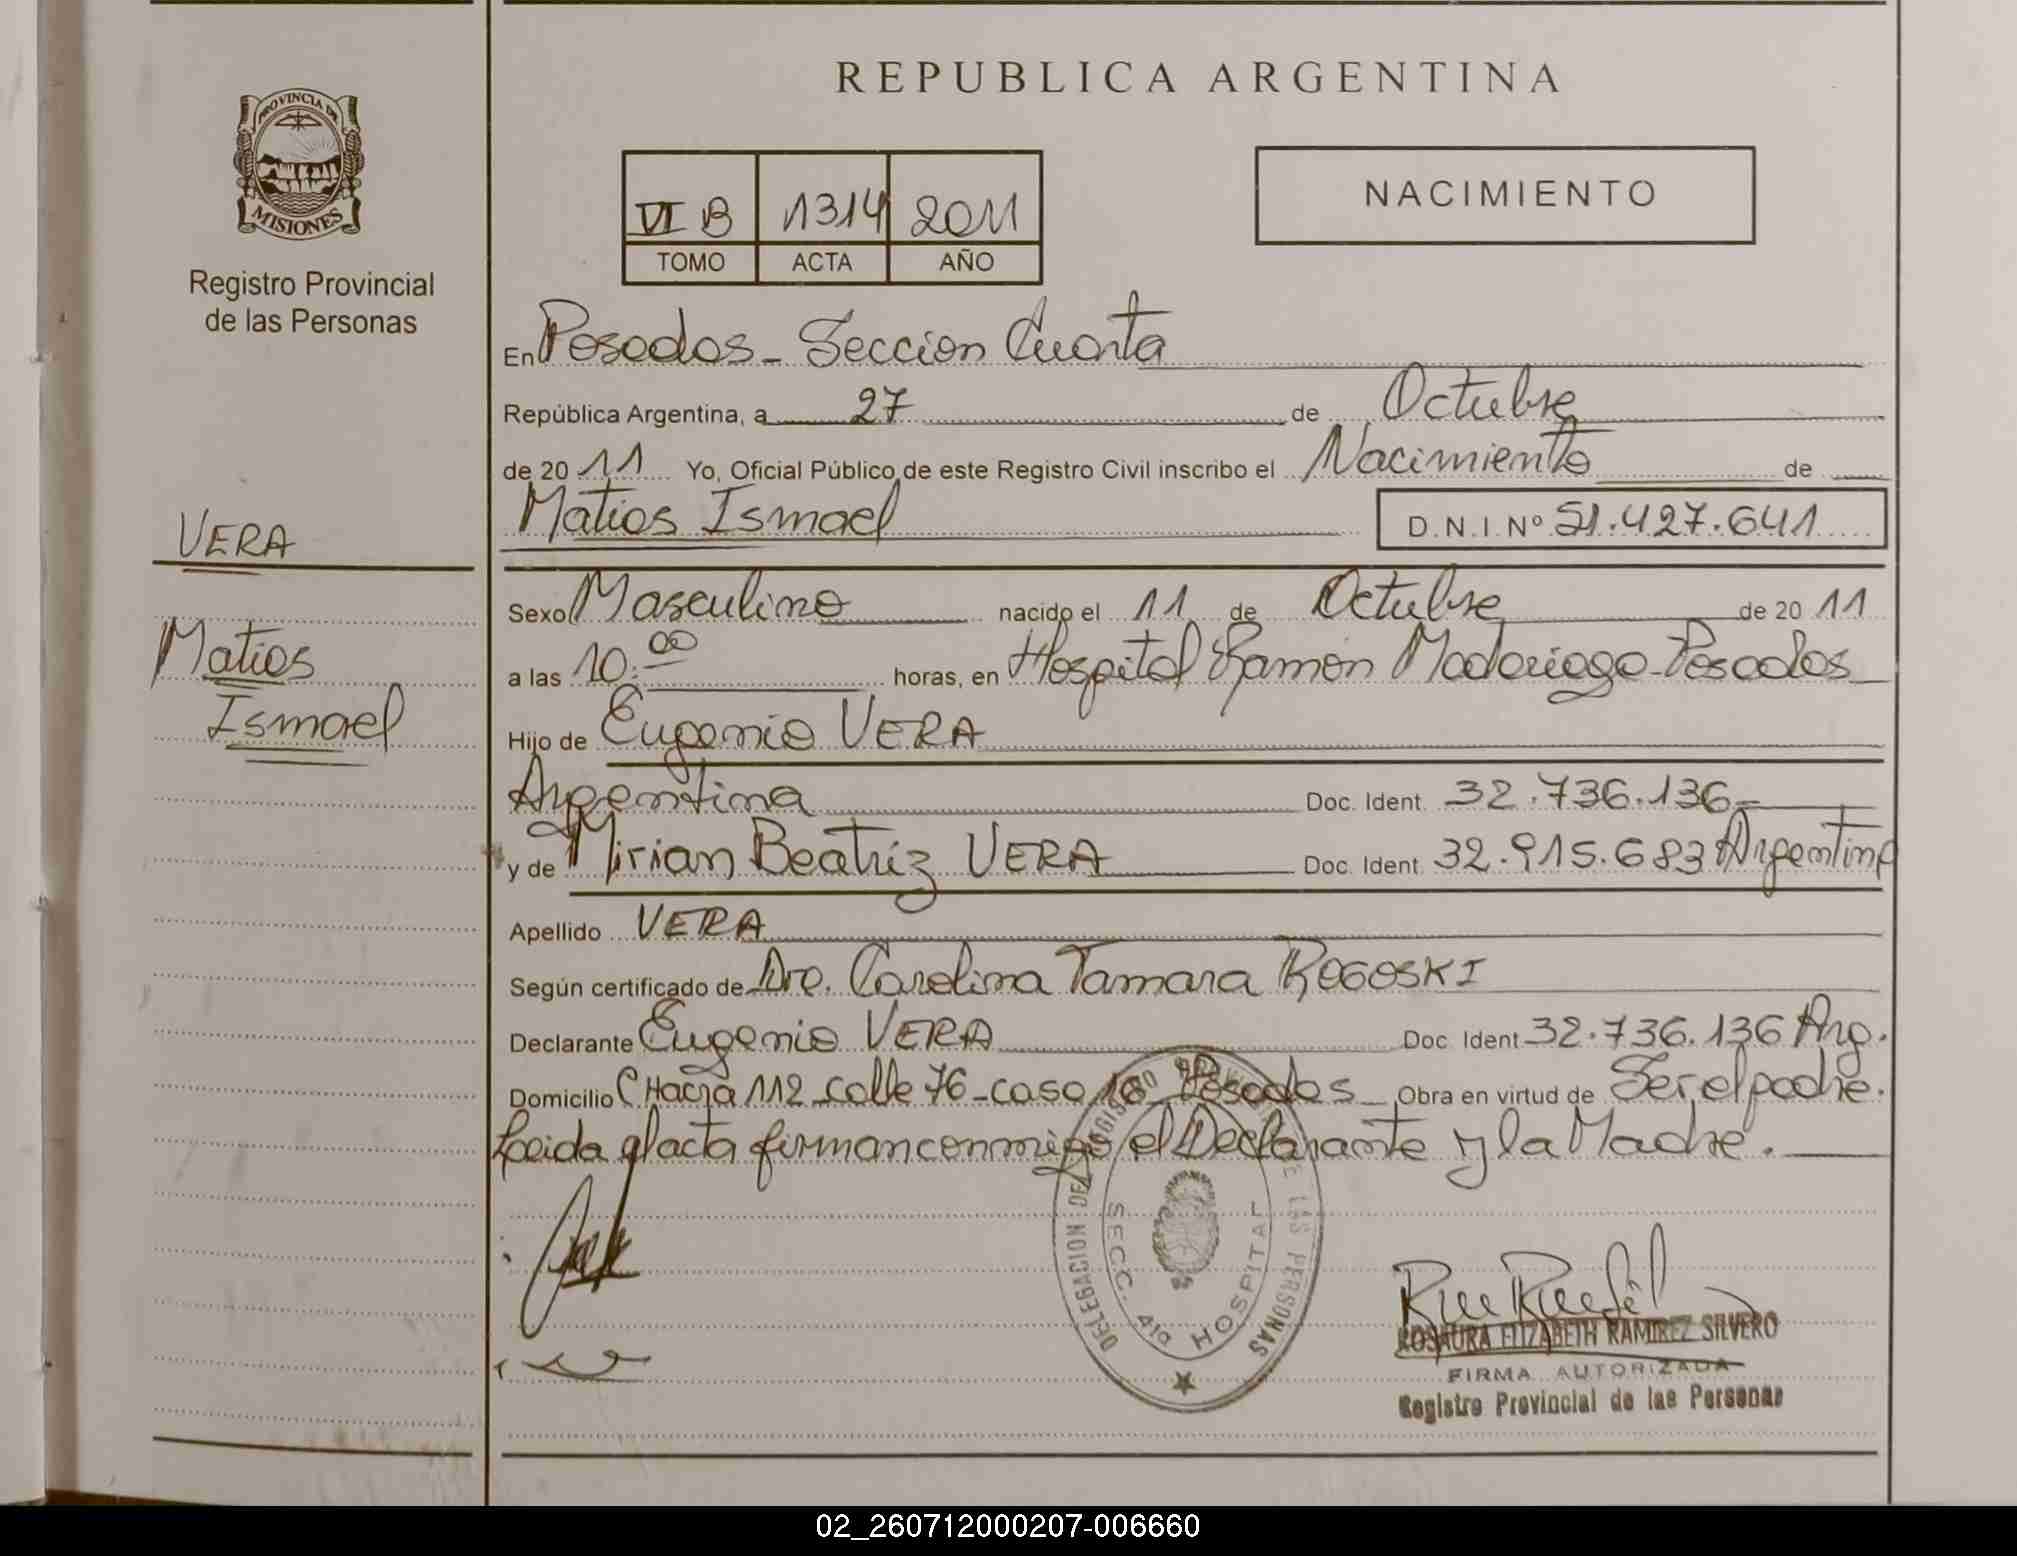 PROVINCIA DE
MISIONES
Registro Provincial
de las Personas
VERA
Matias
Ismael
REPUBLICA ARGENTINA
VI B 1314 2011
TOMO ACTA AÑO
NACIMIENTO
En Posadas - Seccion Cuarta
República Argentina, a 27 de Octubre
de 20 11 Yo, Oficial Público de este Registro Civil inscribo el Nacimiento de
Matias Ismael D.N.I. Nº 51.427.641
Sexo Masculino nacido el 11 de Octubre de 20 11
a las 10:00 horas, en Hospital Ramón Madariaga - Posadas
Hijo de Eugenio VERA
Argentina Doc. Ident. 32.736.136
y de Mirian Beatriz VERA Doc. Ident. 32.915.683 Argentina
Apellido VERA
Según certificado de Dra. Carolina Tamara ROGOSKI
Declarante Eugenio VERA Doc. Ident 32.736.136 Arg.
Domicilio CHacra 112 - calle 76 - casa 18 - Posadas Obra en virtud de Ser el padre.
Leida el acta firman conmigo el Declarante y la Madre.
DELEGACION DEL REGISTRO PROVINCIAL DE LAS PERSONAS
SECC. 4ta HOSPITAL
ROSAURA ELIZABETH RAMIREZ SILVERO
FIRMA AUTORIZADA
Registro Provincial de las Personas
02_260712000207-006660